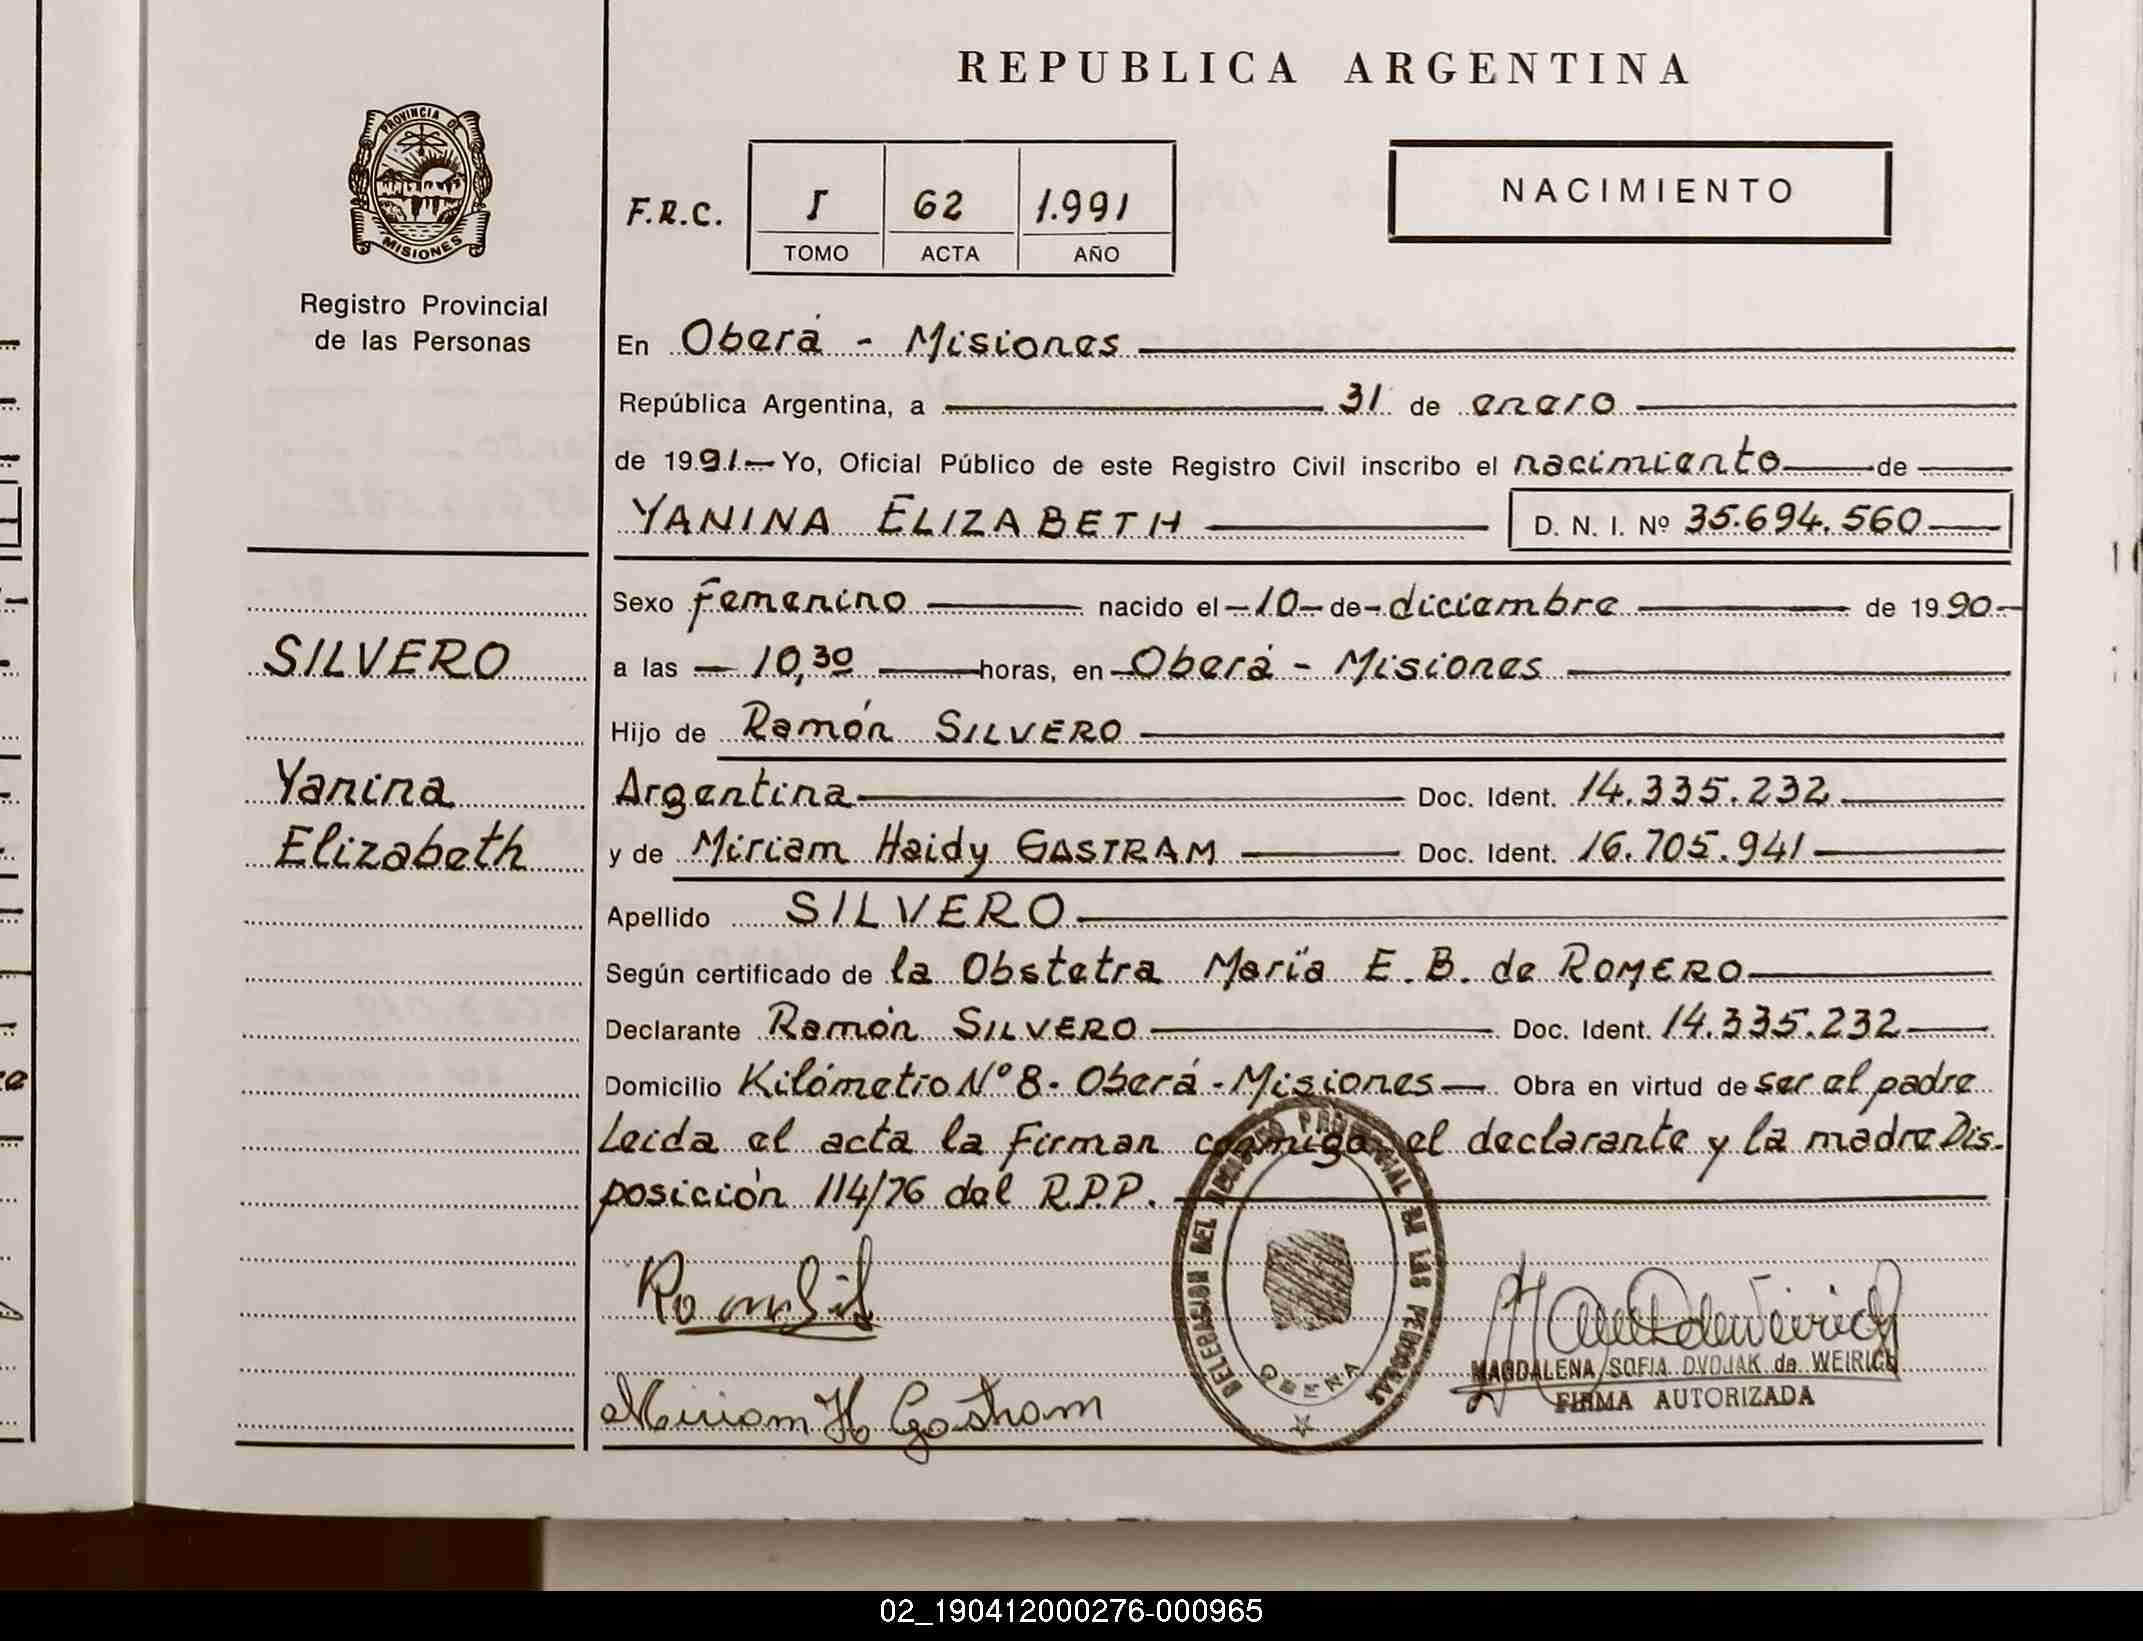 REPUBLICA ARGENTINA
PROVINCIA DE
MISIONES
Registro Provincial
de las Personas
F.R.C. I 62 1.991
TOMO ACTA AÑO
NACIMIENTO
En Oberá - Misiones
República Argentina, a 31 de enero
de 1991 Yo, Oficial Público de este Registro Civil inscribo el nacimiento de
YANINA ELIZABETH D. N. I. Nº 35.694.560
Sexo femenino nacido el 10 de diciembre de 1990
SILVERO
a las 10,30 horas, en Oberá - Misiones
Hijo de Ramón SILVERO
Yanina
Argentina Doc. Ident. 14.335.232
Elizabeth
y de Miriam Haidy GASTRAM Doc. Ident. 16.705.941
Apellido SILVERO
Según certificado de la Obstetra María E. B. de ROMERO
Declarante Ramón SILVERO Doc. Ident. 14.335.232
Domicilio Kilómetro Nº 8 - Oberá - Misiones Obra en virtud de ser el padre
Leida el acta la firman conmigo el declarante y la madre Dis-
posición 114/76 del R.P.P.
DELEGACION DEL REGISTRO PROVINCIAL DE LAS PERSONAS
OBERA
MAGDALENA SOFIA DVOJAK de WEIRICH
FIRMA AUTORIZADA
Miriam H Gastram
02_190412000276-000965